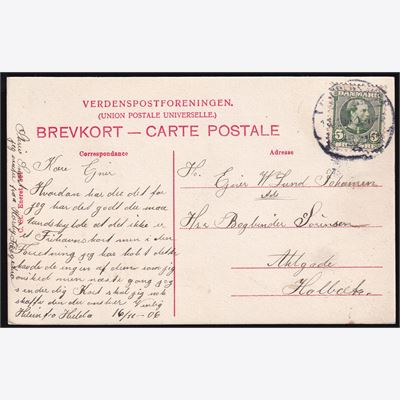 VERDENSPOSTFORENINGEN.
(UNION POSTALE UNIVERSELLE.)
BREVKORT — CARTE POSTALE
Correspondance
Adresse
DANMARK
5 5
Kære Ejner
Hvordan har du det før
jeg har det godt du maa
undskylde at det ikke er
et Frihavnskort men i den
Forretning jeg har købt dette
havde de ingen af dem som jeg
ønsked men næste gang jeg
sender dig Kort skal jeg nok
skaffe den du ønsker Venlig
Hilsen fra Hulda 16/11-06
Hr. Ejner W. Lund Johansen
Adr
Hr. Bogbinder Sørensen
Ahlgade
Holbæk
Eneret